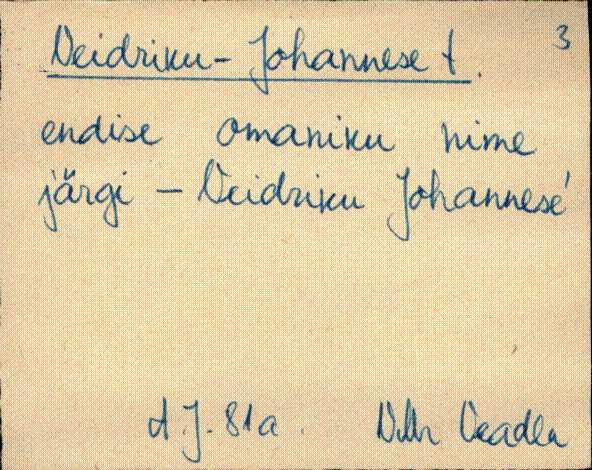 3
Veidriku-Johannese t.
endise omaniku nime
järgi – Veidriku Johannese'
A.J. 81a.